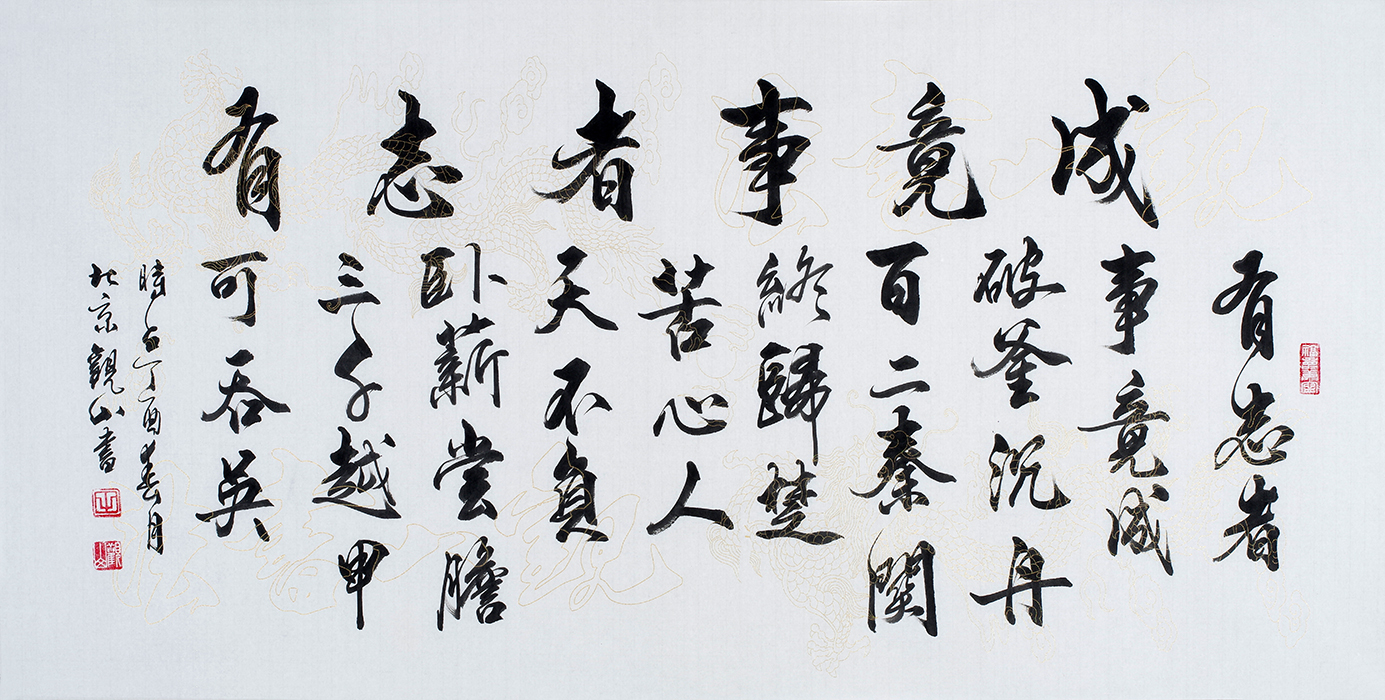 有志者事竟成
有志者
事竟成
破釜沉舟
百二秦關
終歸楚
苦心人
天不負
卧薪尝膽
三千越甲
可吞吴
時在丁酉春月
北京觀山書
觀山